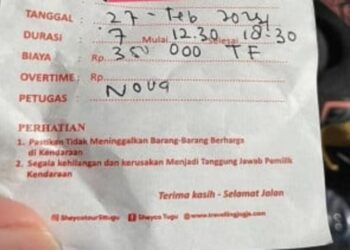 TANGGAL : 27 - Feb 2023
DURASI : 7 Mulai 12.30 Selesai 18.30
BIAYA : Rp. 350 000 TF
OVERTIME : Rp.
PETUGAS : Nova
PERHATIAN
1. Pastikan Tidak Meninggalkan Barang-Barang Berharga
di Kendaraan
2. Segala kehilangan dan kerusakan Menjadi Tanggung Jawab Pemilik
Kendaraan
Terima kasih - Selamat Jalan
SheycotourSttugu Sheyco Tugu @www.travellingjogja.com